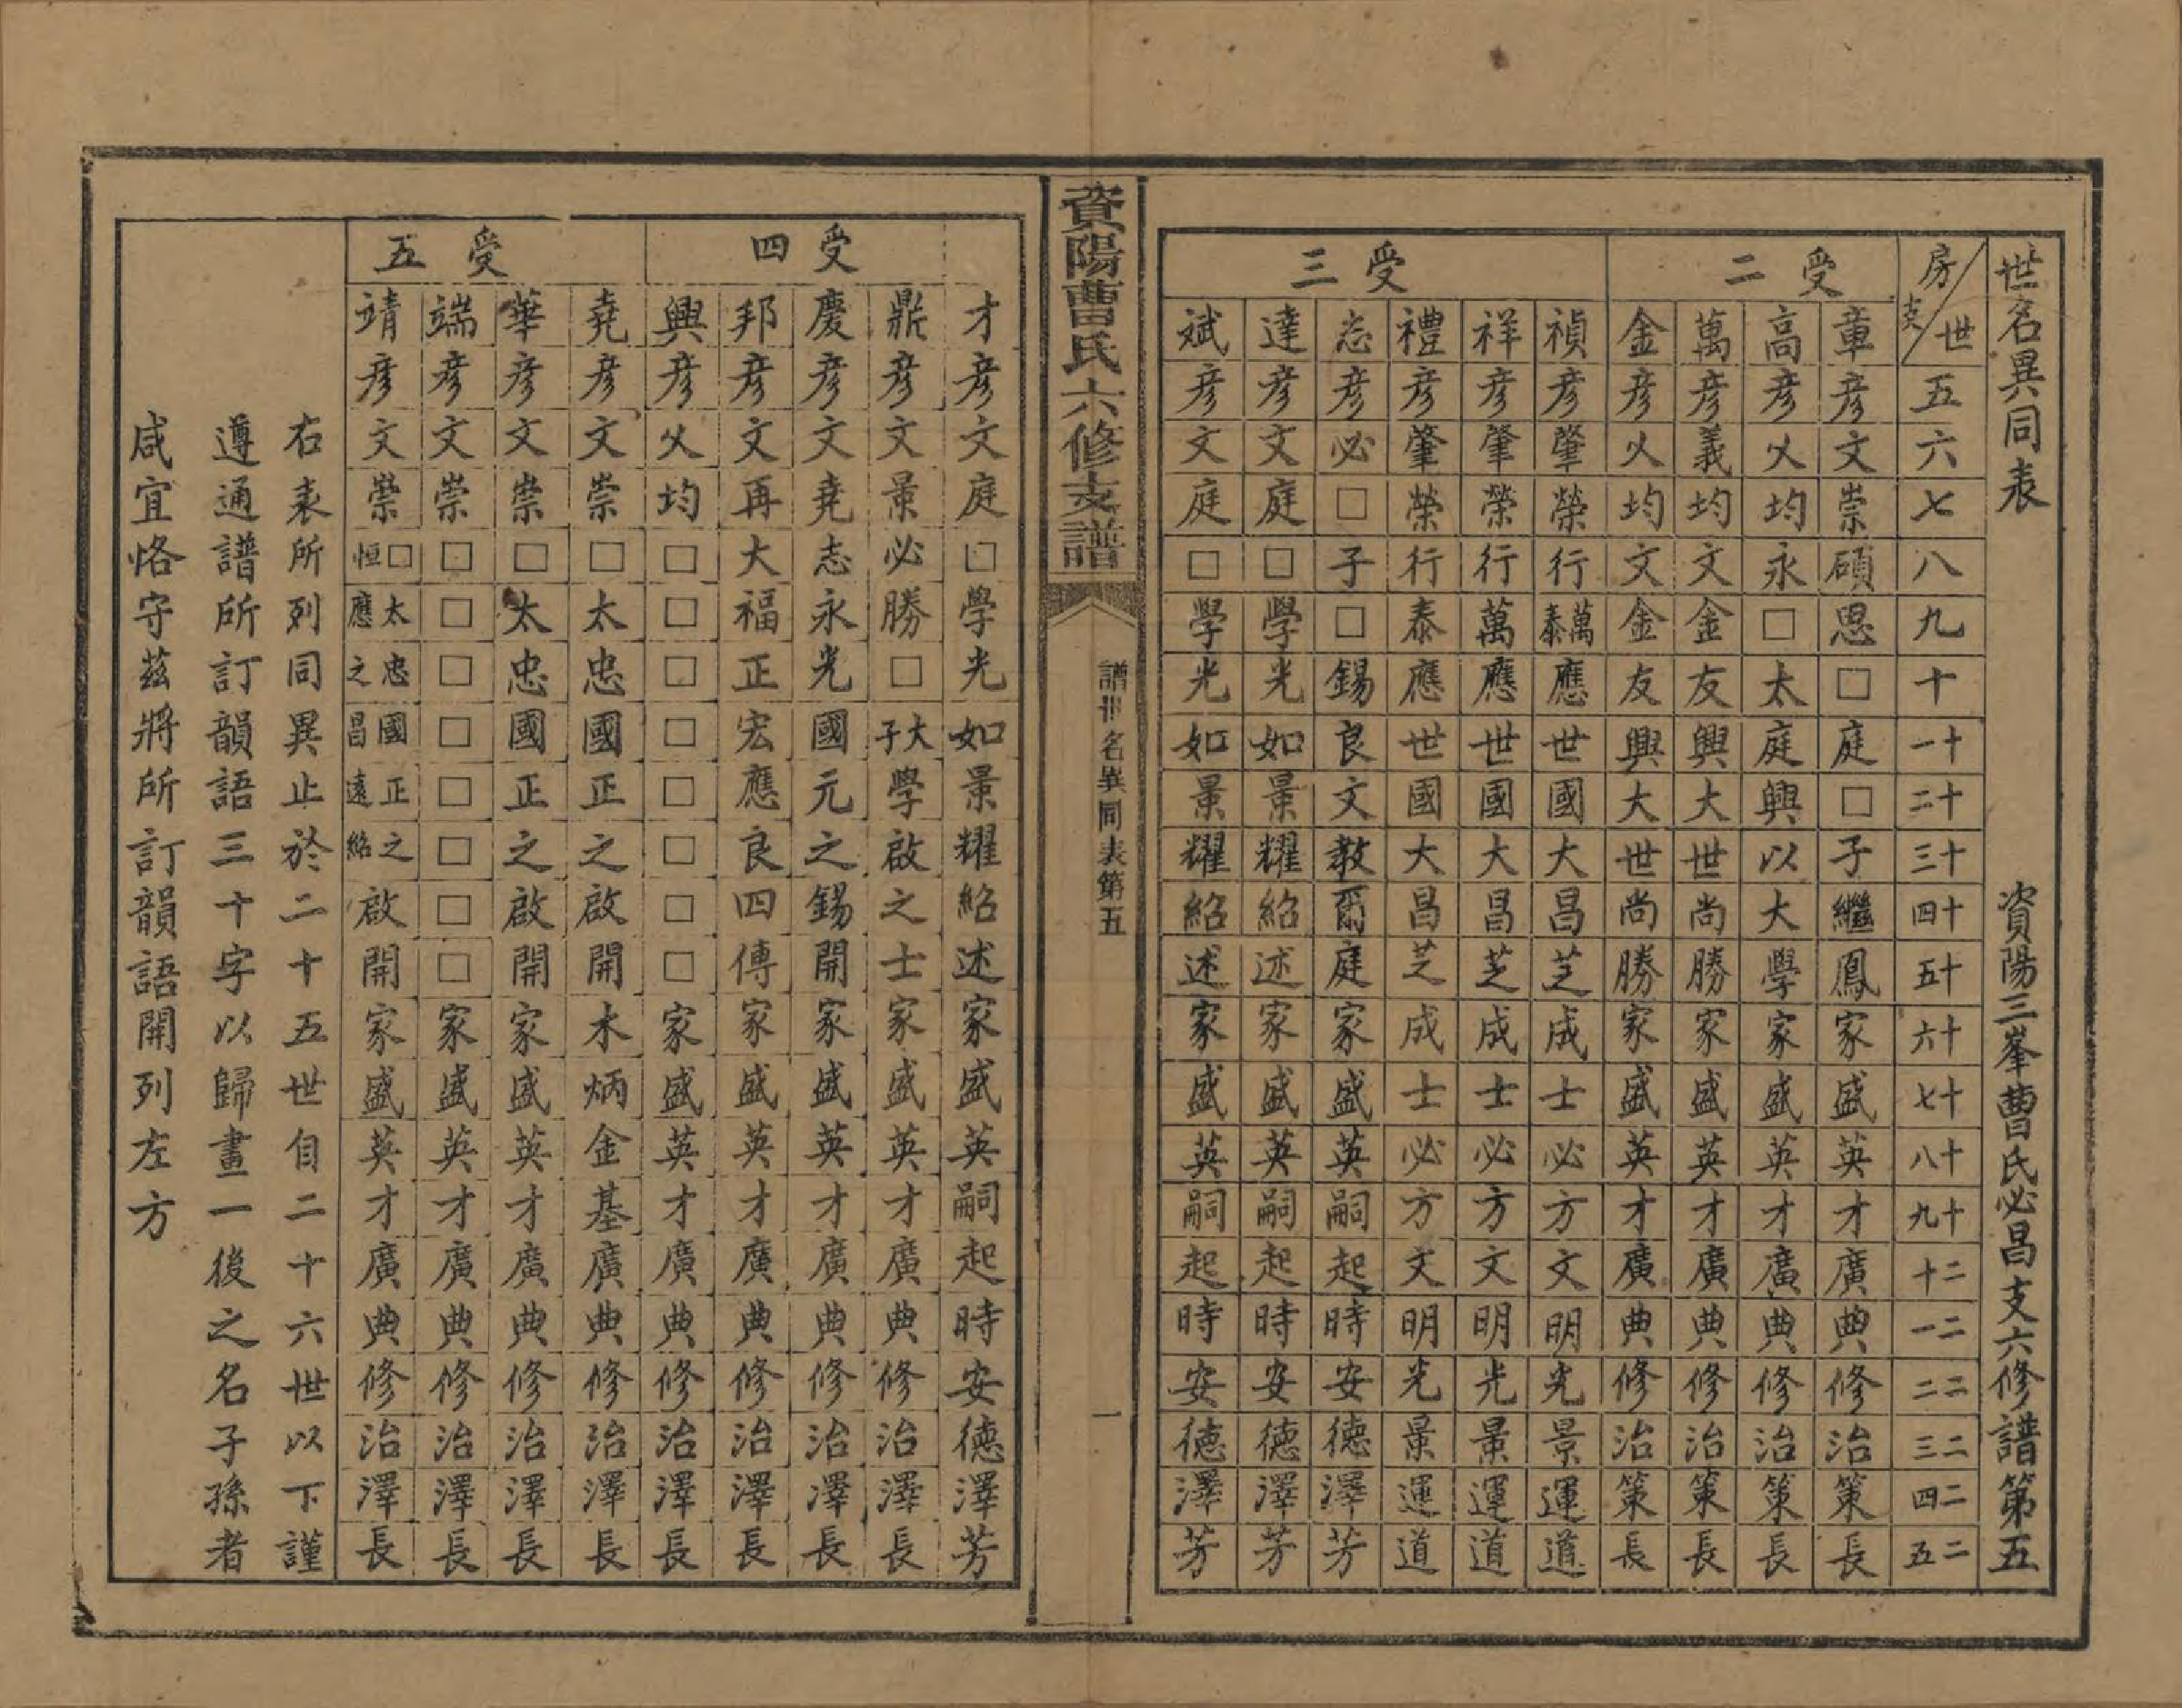 世名異同表 資陽三峯曹氏必昌支六修譜第五
房支/世 五 六 七 八 九 十 十一 十二 十三 十四 十五 十六 十七 十八 十九 二十 二一 二二 二三 二四 二五
受二
章 彦 文 崇 碩 思 □ 庭 □ 子 繼 鳳 家 盛 英 才 廣 典 修 治 策 長
高 彦 火 均 永 □ 太 庭 興 以 大 學 家 盛 英 才 廣 典 修 治 策 長
萬 彦 義 均 文 金 友 興 大 世 尚 勝 家 盛 英 才 廣 典 修 治 策 長
金 彦 火 均 文 金 友 興 大 世 尚 勝 家 盛 英 才 廣 典 修 治 策 長
受三
禎 彦 肇 榮 行 萬泰 應 世 國 大 昌 芝 成 士 必 方 文 明 光 景 運 道
祥 彦 肇 榮 行 萬 應 世 國 大 昌 芝 成 士 必 方 文 明 光 景 運 道
禮 彦 肇 榮 行 泰 應 世 國 大 昌 芝 成 士 必 方 文 明 光 景 運 道
志 彦 必 □ 子 □ 錫 良 文 教 爾 庭 家 盛 英 嗣 起 時 安 德 澤 芳
達 彦 文 庭 □ 學 光 如 景 耀 紹 述 家 盛 英 嗣 起 時 安 德 澤 芳
斌 彦 文 庭 □ 學 光 如 景 耀 紹 述 家 盛 英 嗣 起 時 安 德 澤 芳
資陽曹氏六修支譜 譜世名異同表第五 一
才 彦 文 庭 □ 學 光 如 景 耀 紹 述 家 盛 英 嗣 起 時 安 德 澤 芳
受四
鼎 彦 文 景 必 勝 □ 大子 學 啟 之 士 家 盛 英 才 廣 典 修 治 澤 長
慶 彦 文 堯 志 永 光 國 元 之 錫 開 家 盛 英 才 廣 典 修 治 澤 長
邦 彦 文 再 大 福 正 宏 應 良 四 傳 家 盛 英 才 廣 典 修 治 澤 長
興 彦 火 均 □ □ □ □ □ □ □ □ 家 盛 英 才 廣 典 修 治 澤 長
受五
堯 彦 文 崇 □ 太 忠 國 正 之 啟 開 木 炳 金 基 廣 典 修 治 澤 長
華 彦 文 崇 □ 太 忠 國 正 之 啟 開 家 盛 英 才 廣 典 修 治 澤 長
端 彦 文 崇 □ □ □ □ □ □ □ □ 家 盛 英 才 廣 典 修 治 澤 長
靖 彦 文 崇 □恒 太應 忠之 國昌 正遠 之紹 啟 開 家 盛 英 才 廣 典 修 治 澤 長
右表所列同異止於二十五世自二十六世以下謹
遵通譜所訂韻語三十字以歸畫一後之名子孫者
咸宜恪守茲將所訂韻語開列左方